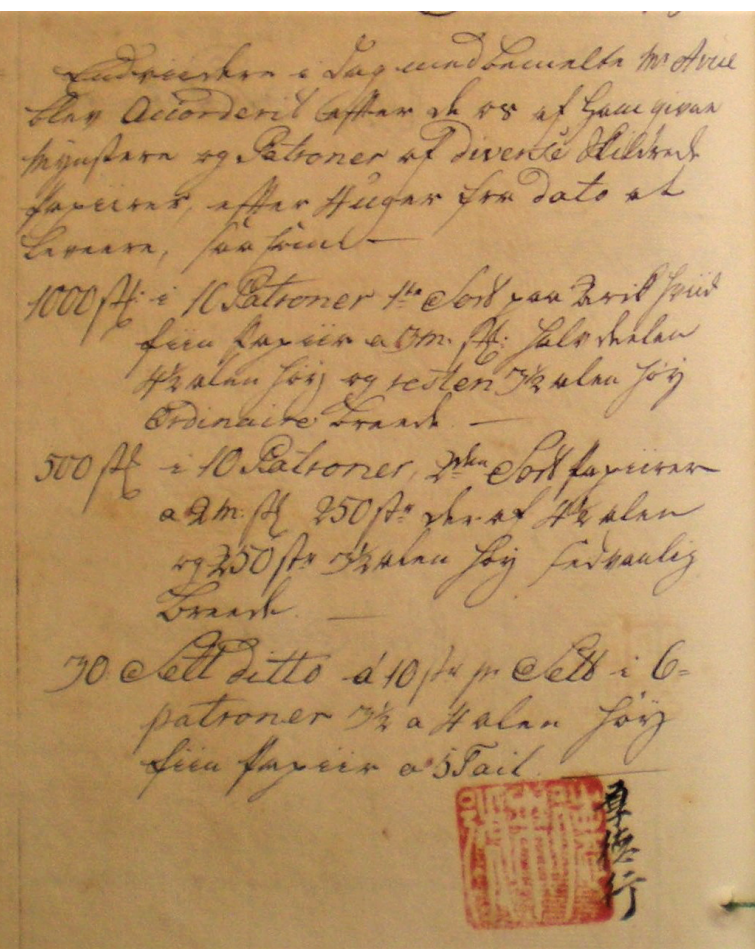 Endvidere i Dag med bemelte Mr Avue
blev Accorderit efter de os af ham givne
Mynstere og Patroner af diverse Skildrede
Papiirer, efter 4 uger fra dato at
levere, saasom —
1000 st: i 10 Patroner 1te Sort paa hvid
fiin Papiir a 3 m. st: halvdeelen
4½ alen høy og resten 3½ alen høy
Ordinaire breede. —
500 st i 10 Patroner, 2den Sort Papiirer
a 2 m: st 250 str der af 4½ alen
og 250 str 3½ alen høy sedvanlig
breede. —
30 Sett ditto á 10 str pr Sett i 6-
patroner 3½ a 4 alen høy
fiin Papiir a 5 Tail. —
德行